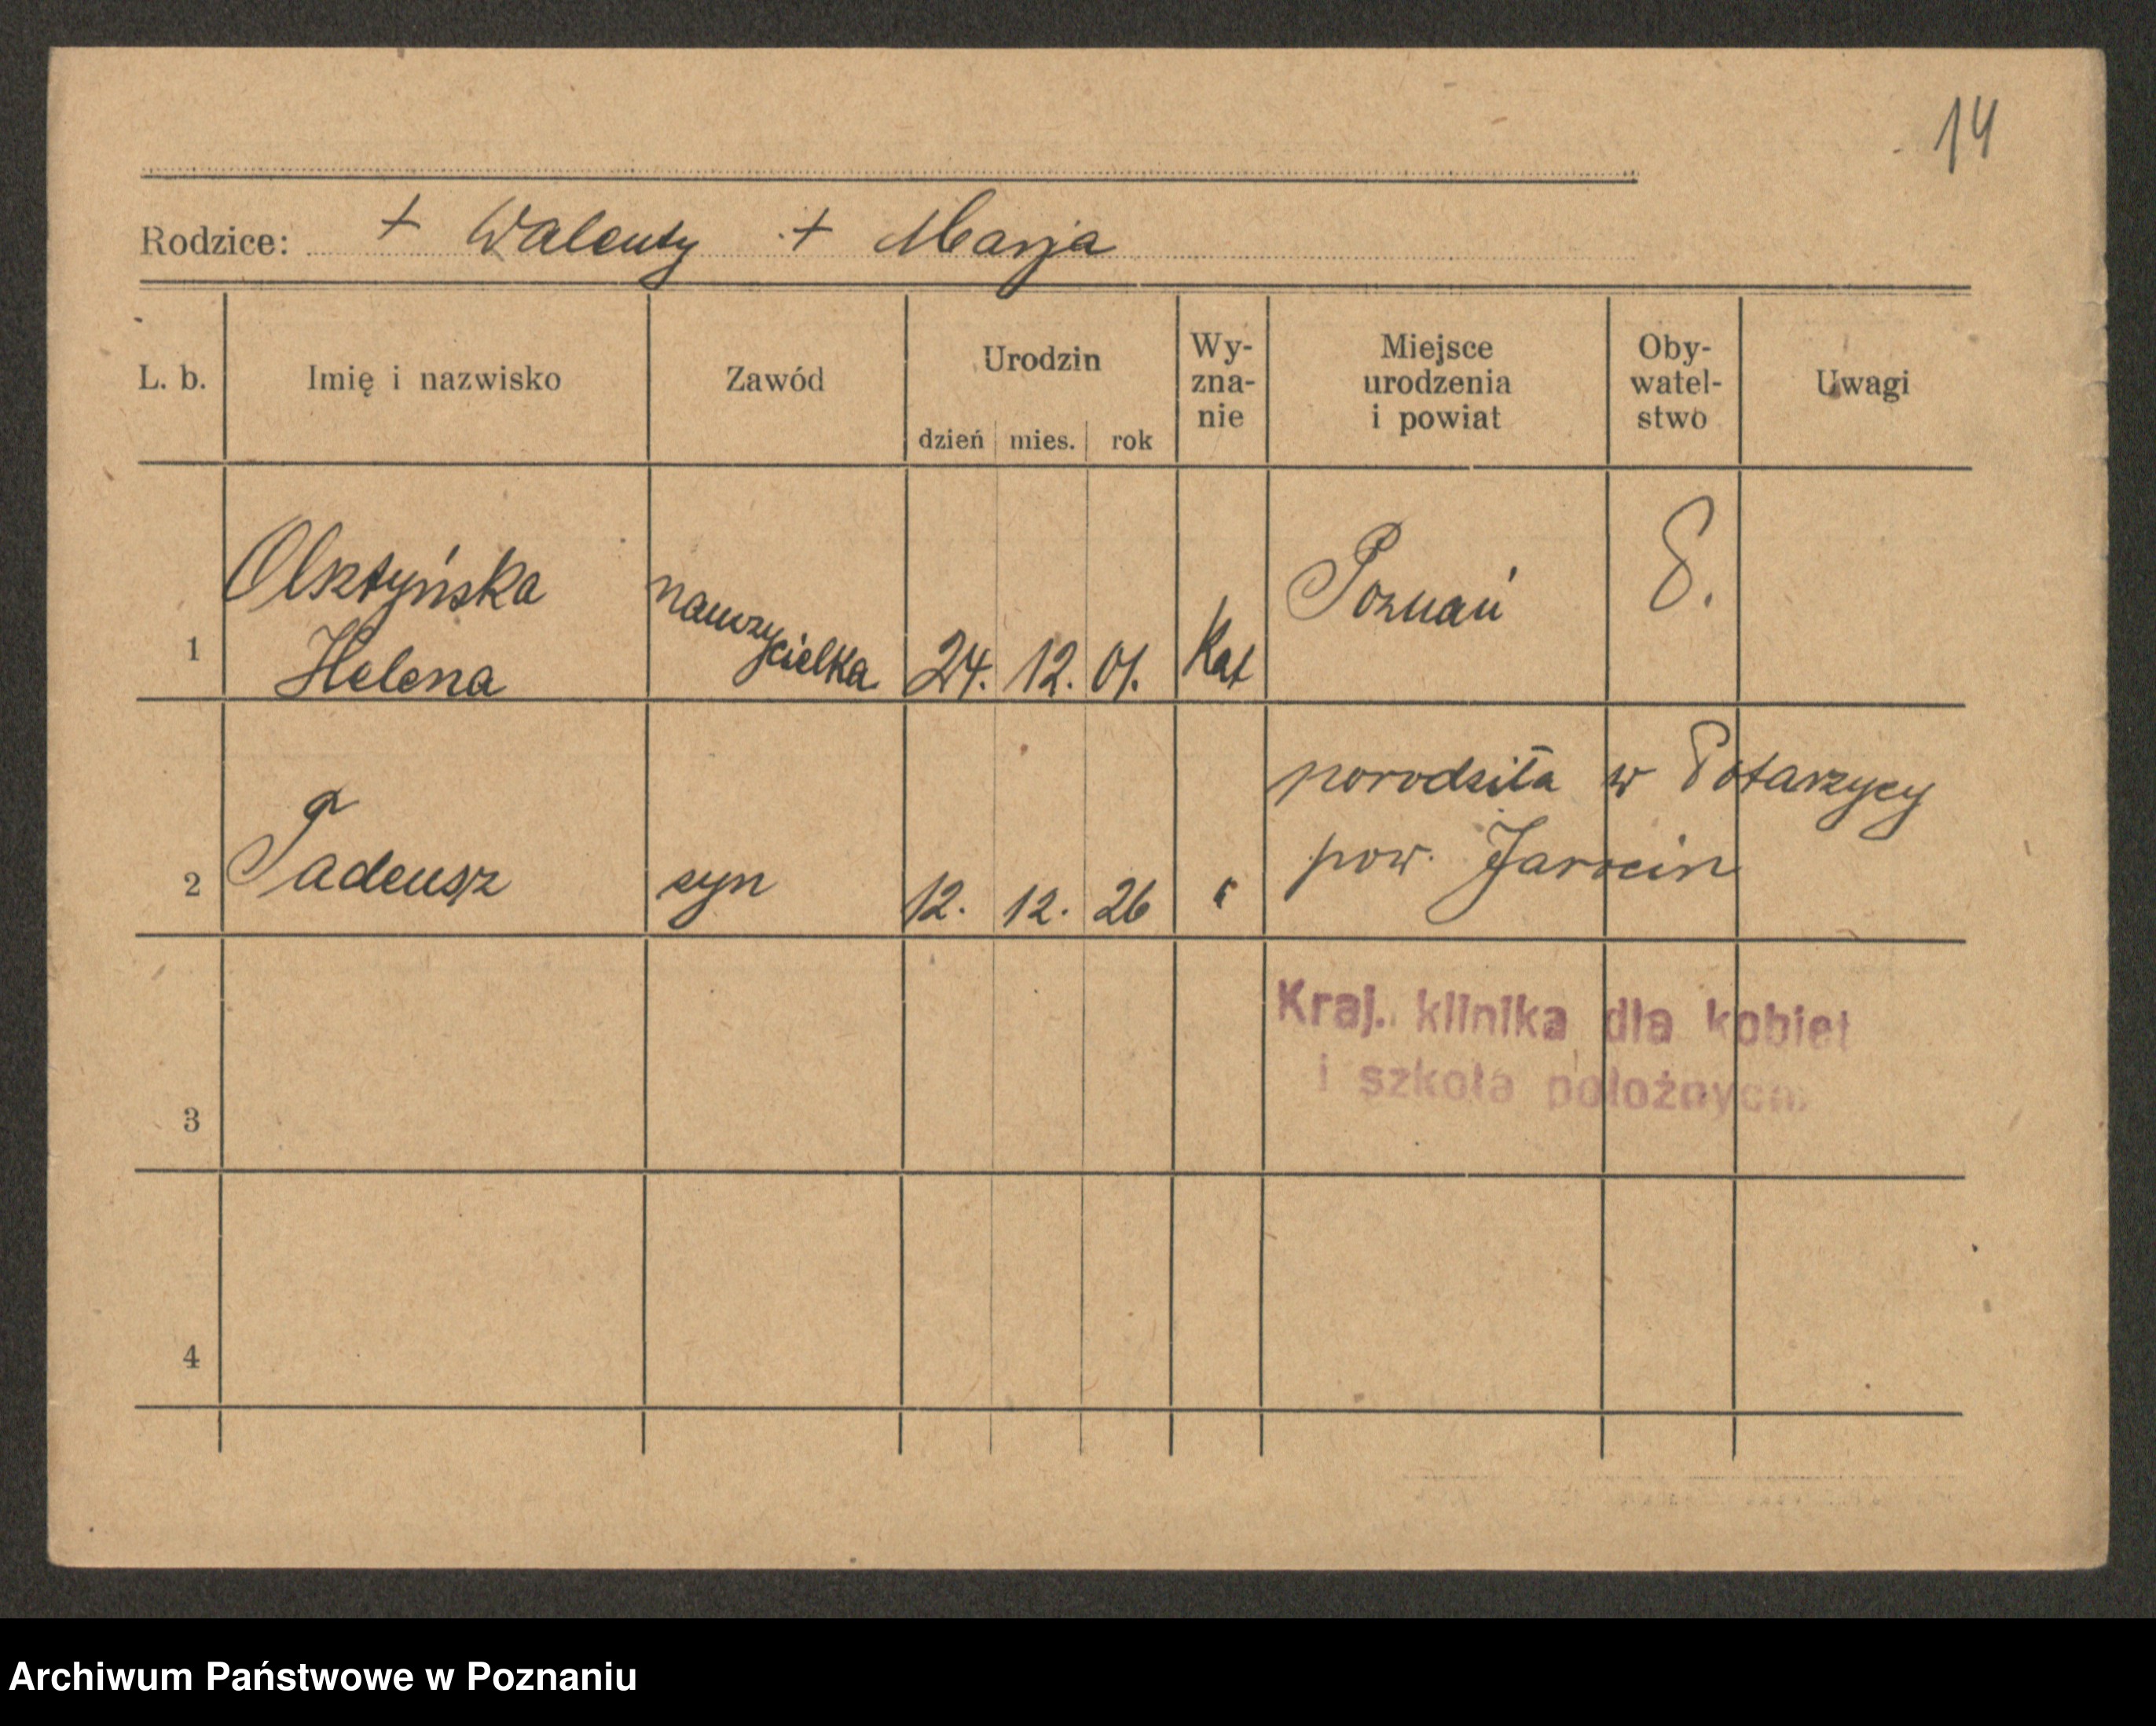 14
Rodzice: + Walenty + Marja
L. b. Imię i nazwisko Zawód Urodzin dzień mies. rok Wy-zna-nie Miejsce urodzenia i powiat Oby-watel-stwo Uwagi
1 Olsztyńska Helena nauczycielka 24. 12. 01. Kat Poznań P.
2 Tadeusz syn 12. 12. 26 " porodziła w Potarzycy
pow. Jarocin
Kraj. klinika dla kobiet
i szkoła położnych
3
4
Archiwum Państwowe w Poznaniu